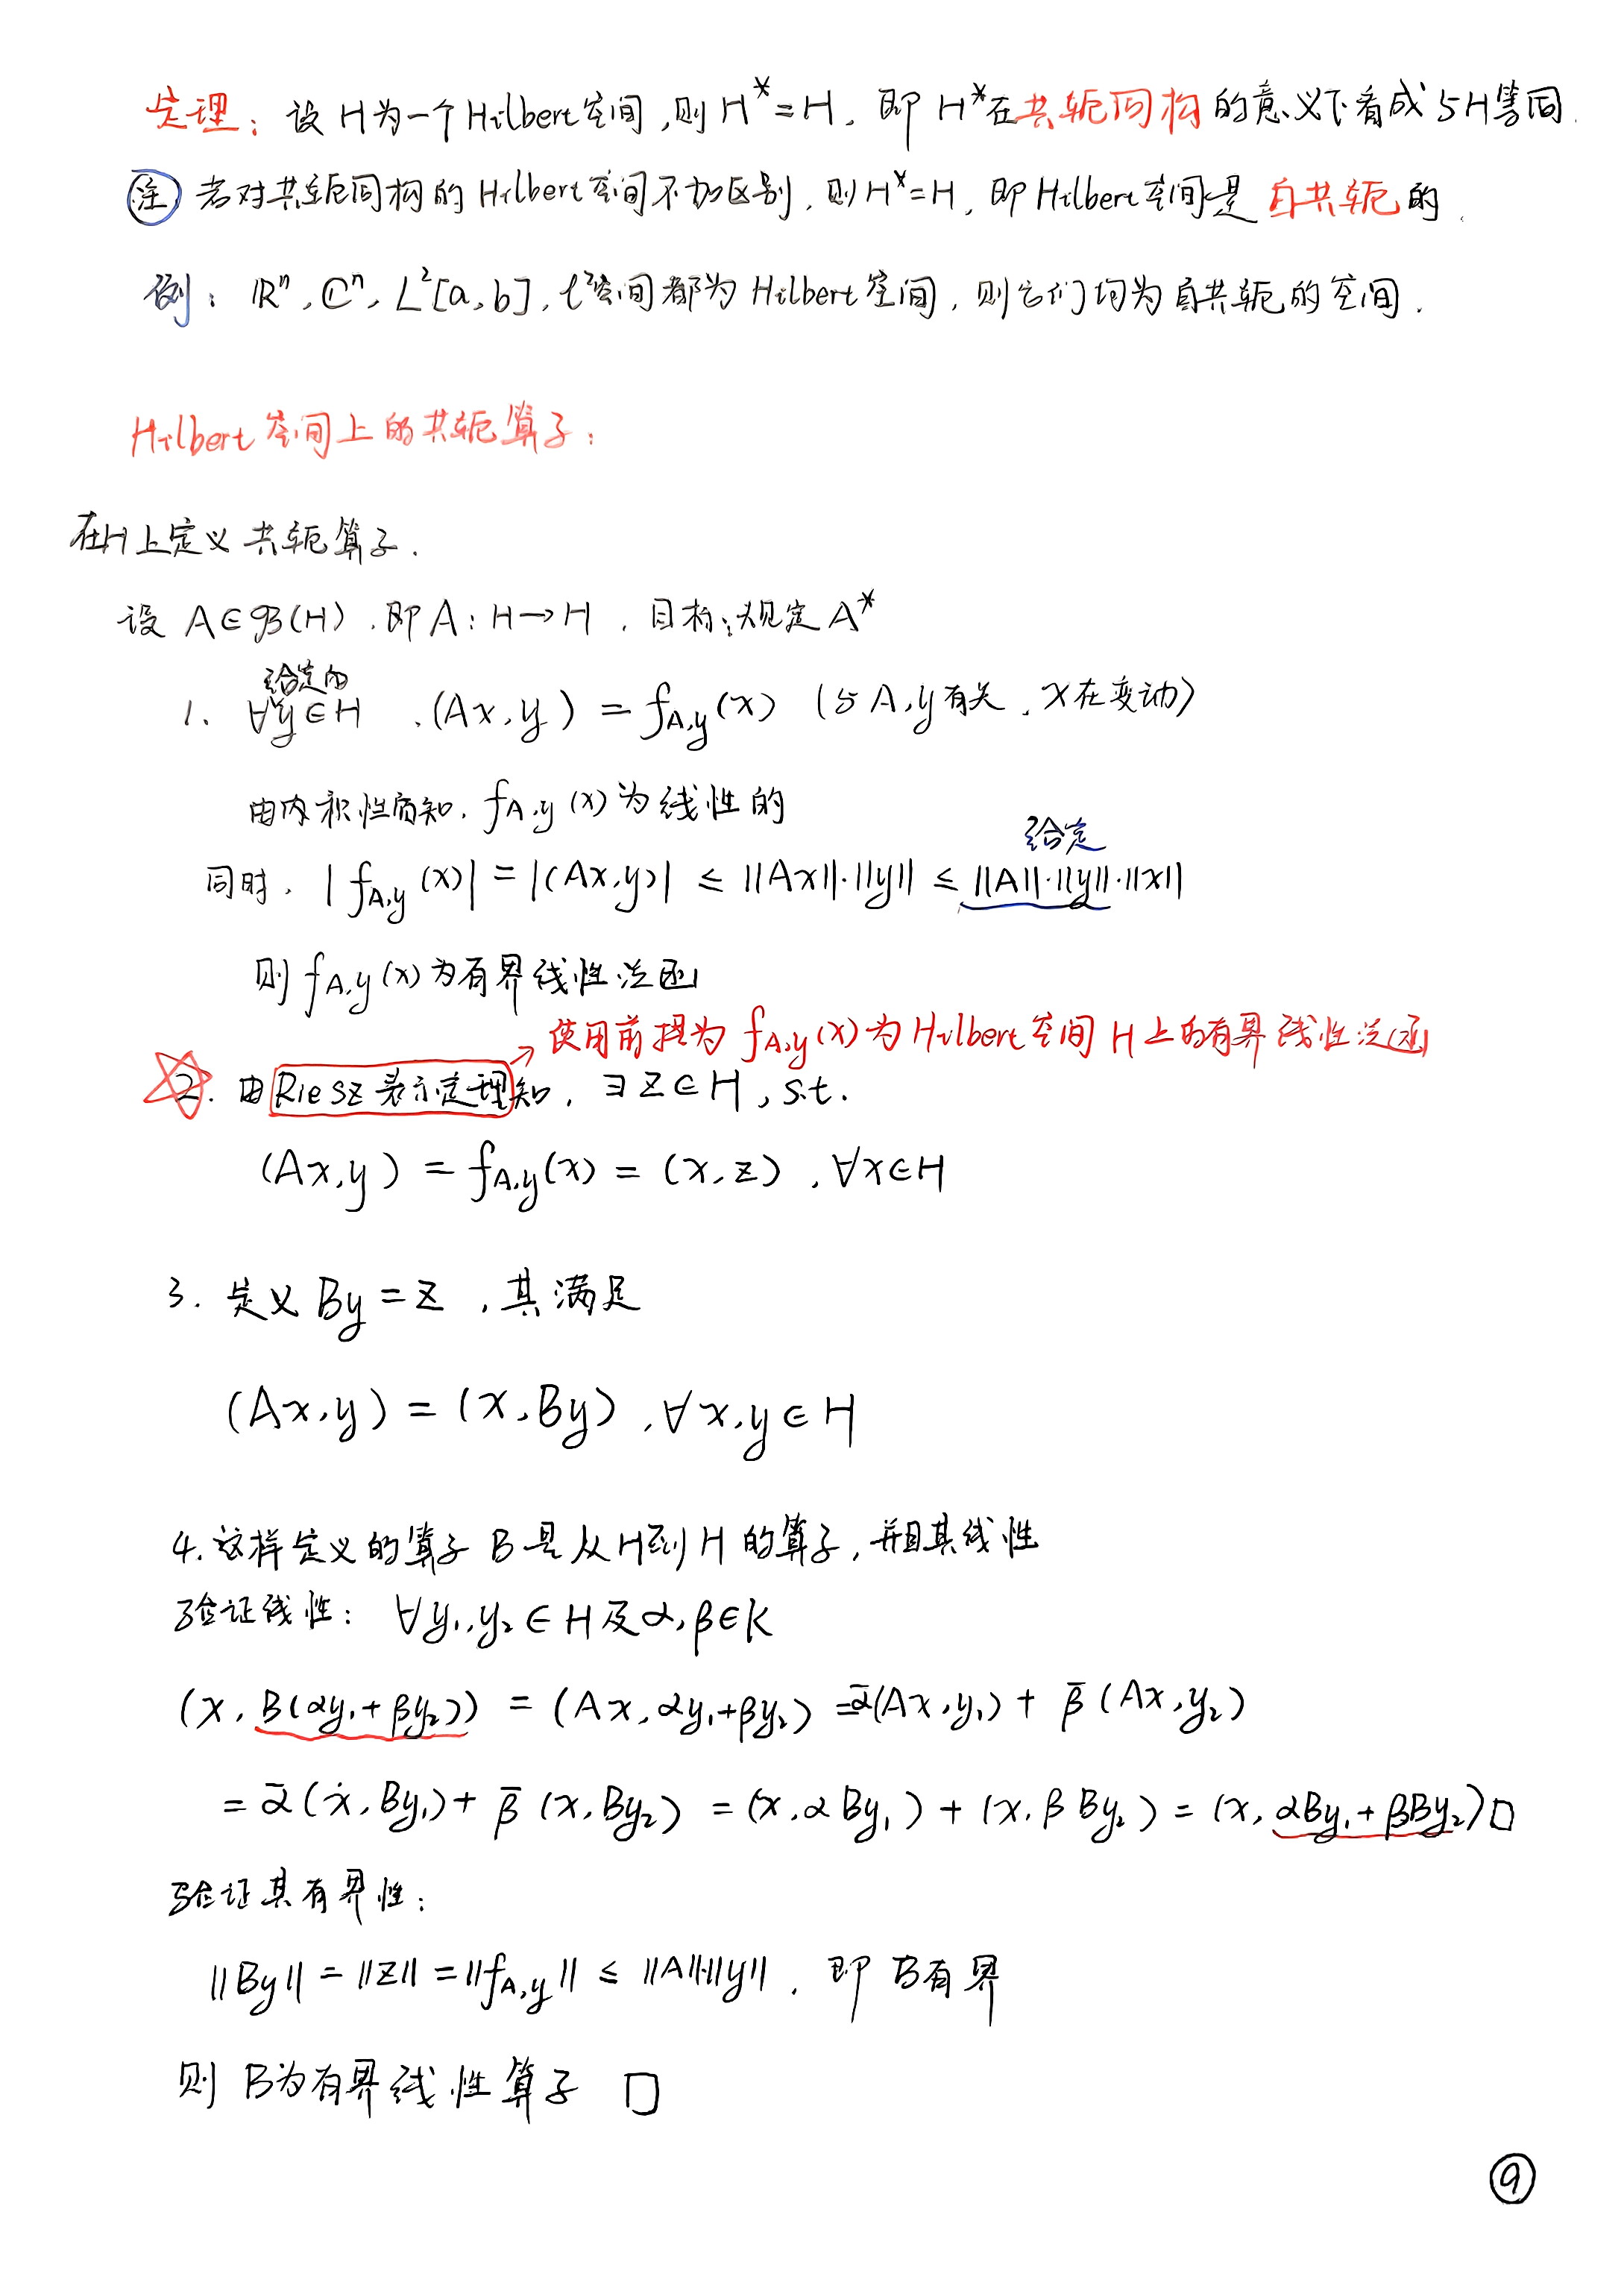 定理：设 H 为一个 Hilbert 空间,则 H* = H. 即 H* 在共轭同构的意义下看成与H等同.
注 若对共轭同构的 Hilbert 空间不加区别, 则 H* = H, 即 Hilbert 空间是 自共轭的.
例： ℝⁿ, ℂⁿ, L²[a,b], ℓ²空间都为 Hilbert 空间, 则它们均为自共轭的空间.
Hilbert 空间上的共轭算子：
在H上定义共轭算子.
设 A∈𝓑(H), 即 A: H→H, 目标:规定 A*
给定的
1. ∀y∈H , (Ax,y) = f_{A,y}(x) (与 A,y有关, x在变动)
由内积性质知, f_{A,y}(x) 为线性的
给定
同时, |f_{A,y}(x)| = |(Ax,y)| ≤ ||Ax||·||y|| ≤ ||A||·||y||·||x||
则 f_{A,y}(x) 为有界线性泛函
使用前提为 f_{A,y}(x) 为 Hilbert 空间 H 上的有界线性泛函
2. 由 Riesz 表示定理知, ∃ z∈H, s.t.
(Ax,y) = f_{A,y}(x) = (x,z), ∀x∈H
3. 定义 By = z , 其满足
(Ax,y) = (x,By), ∀x,y∈H
4. 这样定义的算子 B 是从H到 H 的算子, 并且其线性
验证线性： ∀y₁,y₂∈H 及 α,β∈K
(x, B(αy₁+βy₂)) = (Ax, αy₁+βy₂) = ᾱ(Ax,y₁) + β̄(Ax,y₂)
= ᾱ(x,By₁) + β̄(x,By₂) = (x,αBy₁) + (x,βBy₂) = (x, αBy₁+βBy₂) □
验证其有界性：
||By|| = ||z|| = ||f_{A,y}|| ≤ ||A||·||y||, 即 B有界
则 B为有界线性算子 □
9